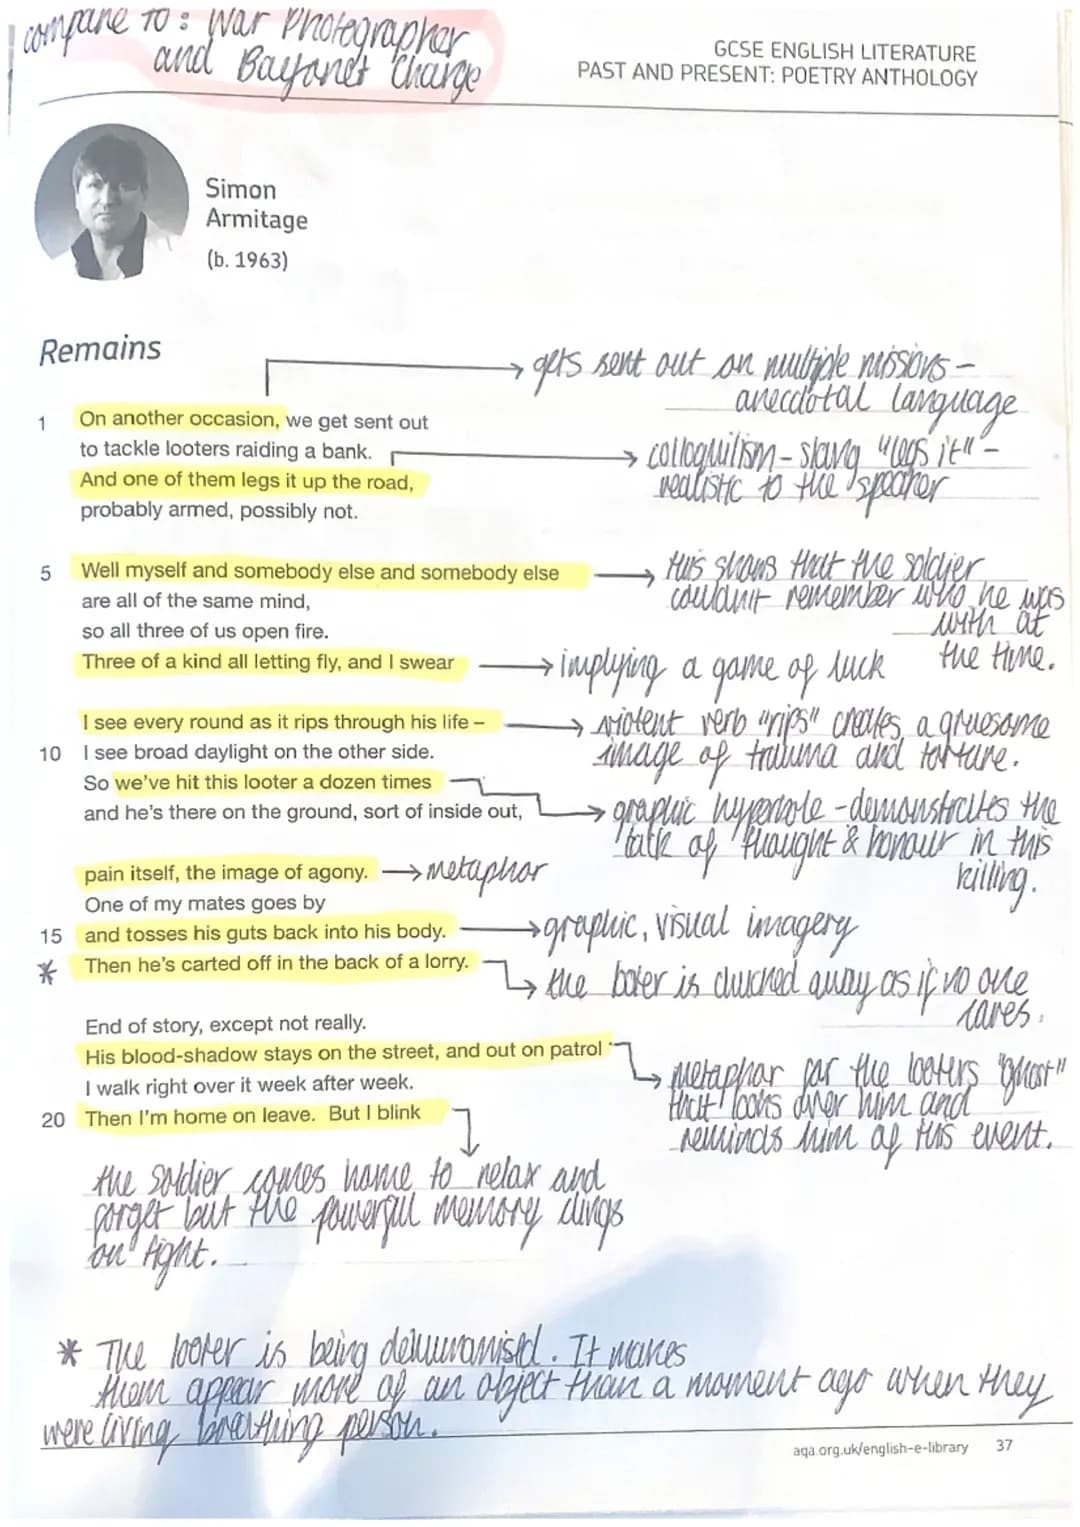 compare to: War Photographer
and Bayonet Charge
GCSE ENGLISH LITERATURE
PAST AND PRESENT: POETRY ANTHOLOGY
Simon
Armitage
(b. 1963)
Remains
gets sent out on multiple missions -
anecdotal language
1 On another occasion, we get sent out
to tackle looters raiding a bank.
And one of them legs it up the road,
probably armed, possibly not.
colloquilism - slang "legs it" -
realistic to the speaker
5 Well myself and somebody else and somebody else
are all of the same mind,
so all three of us open fire.
Three of a kind all letting fly, and I swear
this shows that the soldier
couldn't remember who he was
with at
the time.
implying a game of luck
I see every round as it rips through his life –
10 I see broad daylight on the other side.
So we've hit this looter a dozen times
and he's there on the ground, sort of inside out,
violent verb "rips" creates a gruesome
image of trauma and torture.
graphic hyperbole - demonstrates the
lack of thought & honour in this
killing.
pain itself, the image of agony.
metaphor
One of my mates goes by
15 and tosses his guts back into his body.
graphic, visual imagery
* Then he's carted off in the back of a lorry.
the looter is chucked away as if no one
cares.
End of story, except not really.
His blood-shadow stays on the street, and out on patrol
I walk right over it week after week.
20 Then I'm home on leave. But I blink
metaphor for the looters "ghost"
that looks over him and
reminds him of this event.
the soldier comes home to relax and
forget but the powerful memory clings
on tight.
* The looter is being dehumanised. It makes
them appear more of an object than a moment ago when they
were living breathing person.
aqa.org.uk/english-e-library 37